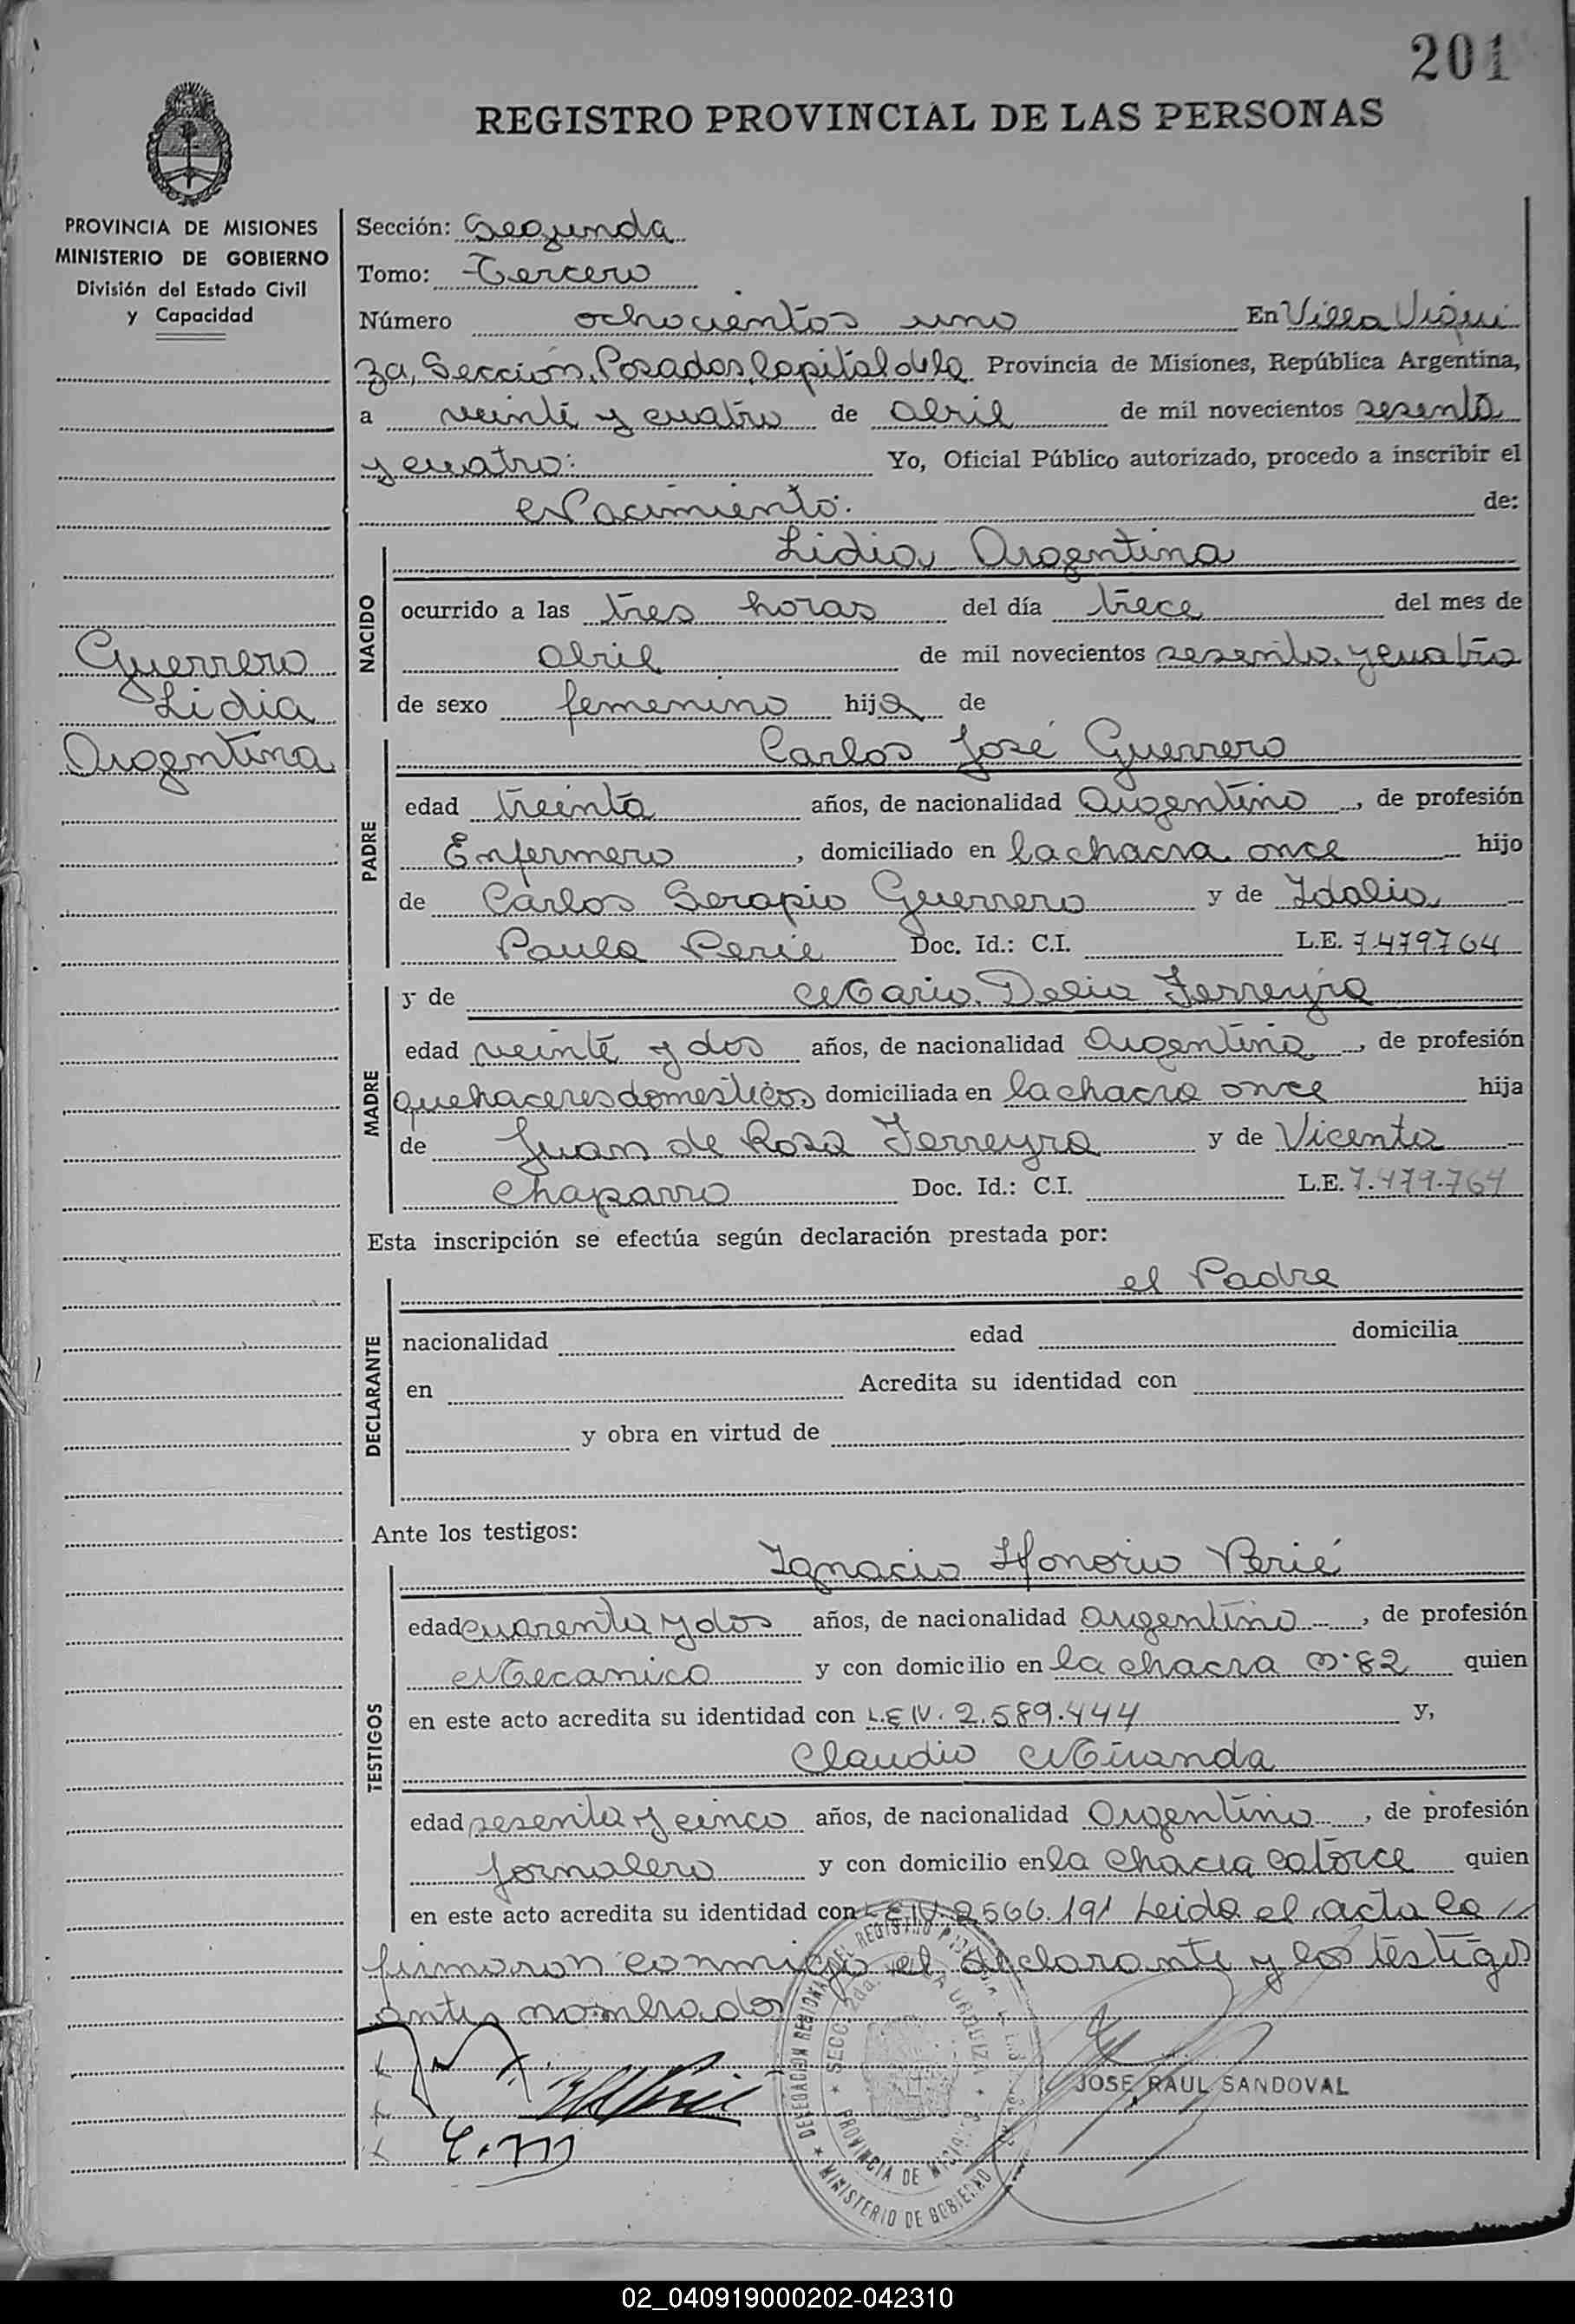 201
REGISTRO PROVINCIAL DE LAS PERSONAS
PROVINCIA DE MISIONES
MINISTERIO DE GOBIERNO
División del Estado Civil
y Capacidad
Guerrero
Lidia
Argentina
Sección: Segunda
Tomo: Tercero
Número ochocientos uno En Villa Urqui
za, Sección, Posadas, Capital de la Provincia de Misiones, República Argentina,
a veinte y cuatro de Abril de mil novecientos sesenta
y cuatro: Yo, Oficial Público autorizado, procedo a inscribir el
Nacimiento. de:
NACIDO
Lidia Argentina
ocurrido a las tres horas del día trece del mes de
Abril de mil novecientos sesenta y cuatro
de sexo femenino hija de
PADRE
Carlos José Guerrero
edad treinta años, de nacionalidad Argentino, de profesión
Enfermero, domiciliado en la chacra once hijo
de Carlos Serapio Guerrero y de Idalia
Paula Perié Doc. Id.: C.I. L.E. 7.479.764
MADRE
y de Maria Delia Ferreyra
edad veinte y dos años, de nacionalidad Argentina, de profesión
quehaceres domesticos domiciliada en la chacra once hija
de Juan de Rosa Ferreyra y de Vicenta
Chaparro Doc. Id.: C.I. L.E. 7.479.764
Esta inscripción se efectúa según declaración prestada por:
DECLARANTE
el Padre
nacionalidad edad domicilia
en Acredita su identidad con
y obra en virtud de
Ante los testigos:
TESTIGOS
Ignacio Honorio Perié
edad cuarenta y dos años, de nacionalidad argentino, de profesión
Mecanico y con domicilio en la chacra n° 82 quien
en este acto acredita su identidad con L.E N. 2.589.444 y,
Claudio Miranda
edad sesenta y cinco años, de nacionalidad Argentino, de profesión
Jornalero y con domicilio en la chacra catorce quien
en este acto acredita su identidad con L.E N. 2566.191 Leida el acta la //
firmaron conmigo el declarante y los testigos
antes nombrados
DELEGACION REGIONAL DEL REGISTRO
SECC. 2da. VILLA URQUIZA
PROVINCIA DE MISIONES
MINISTERIO DE GOBIERNO
JOSE RAUL SANDOVAL
C. M
02_040919000202-042310